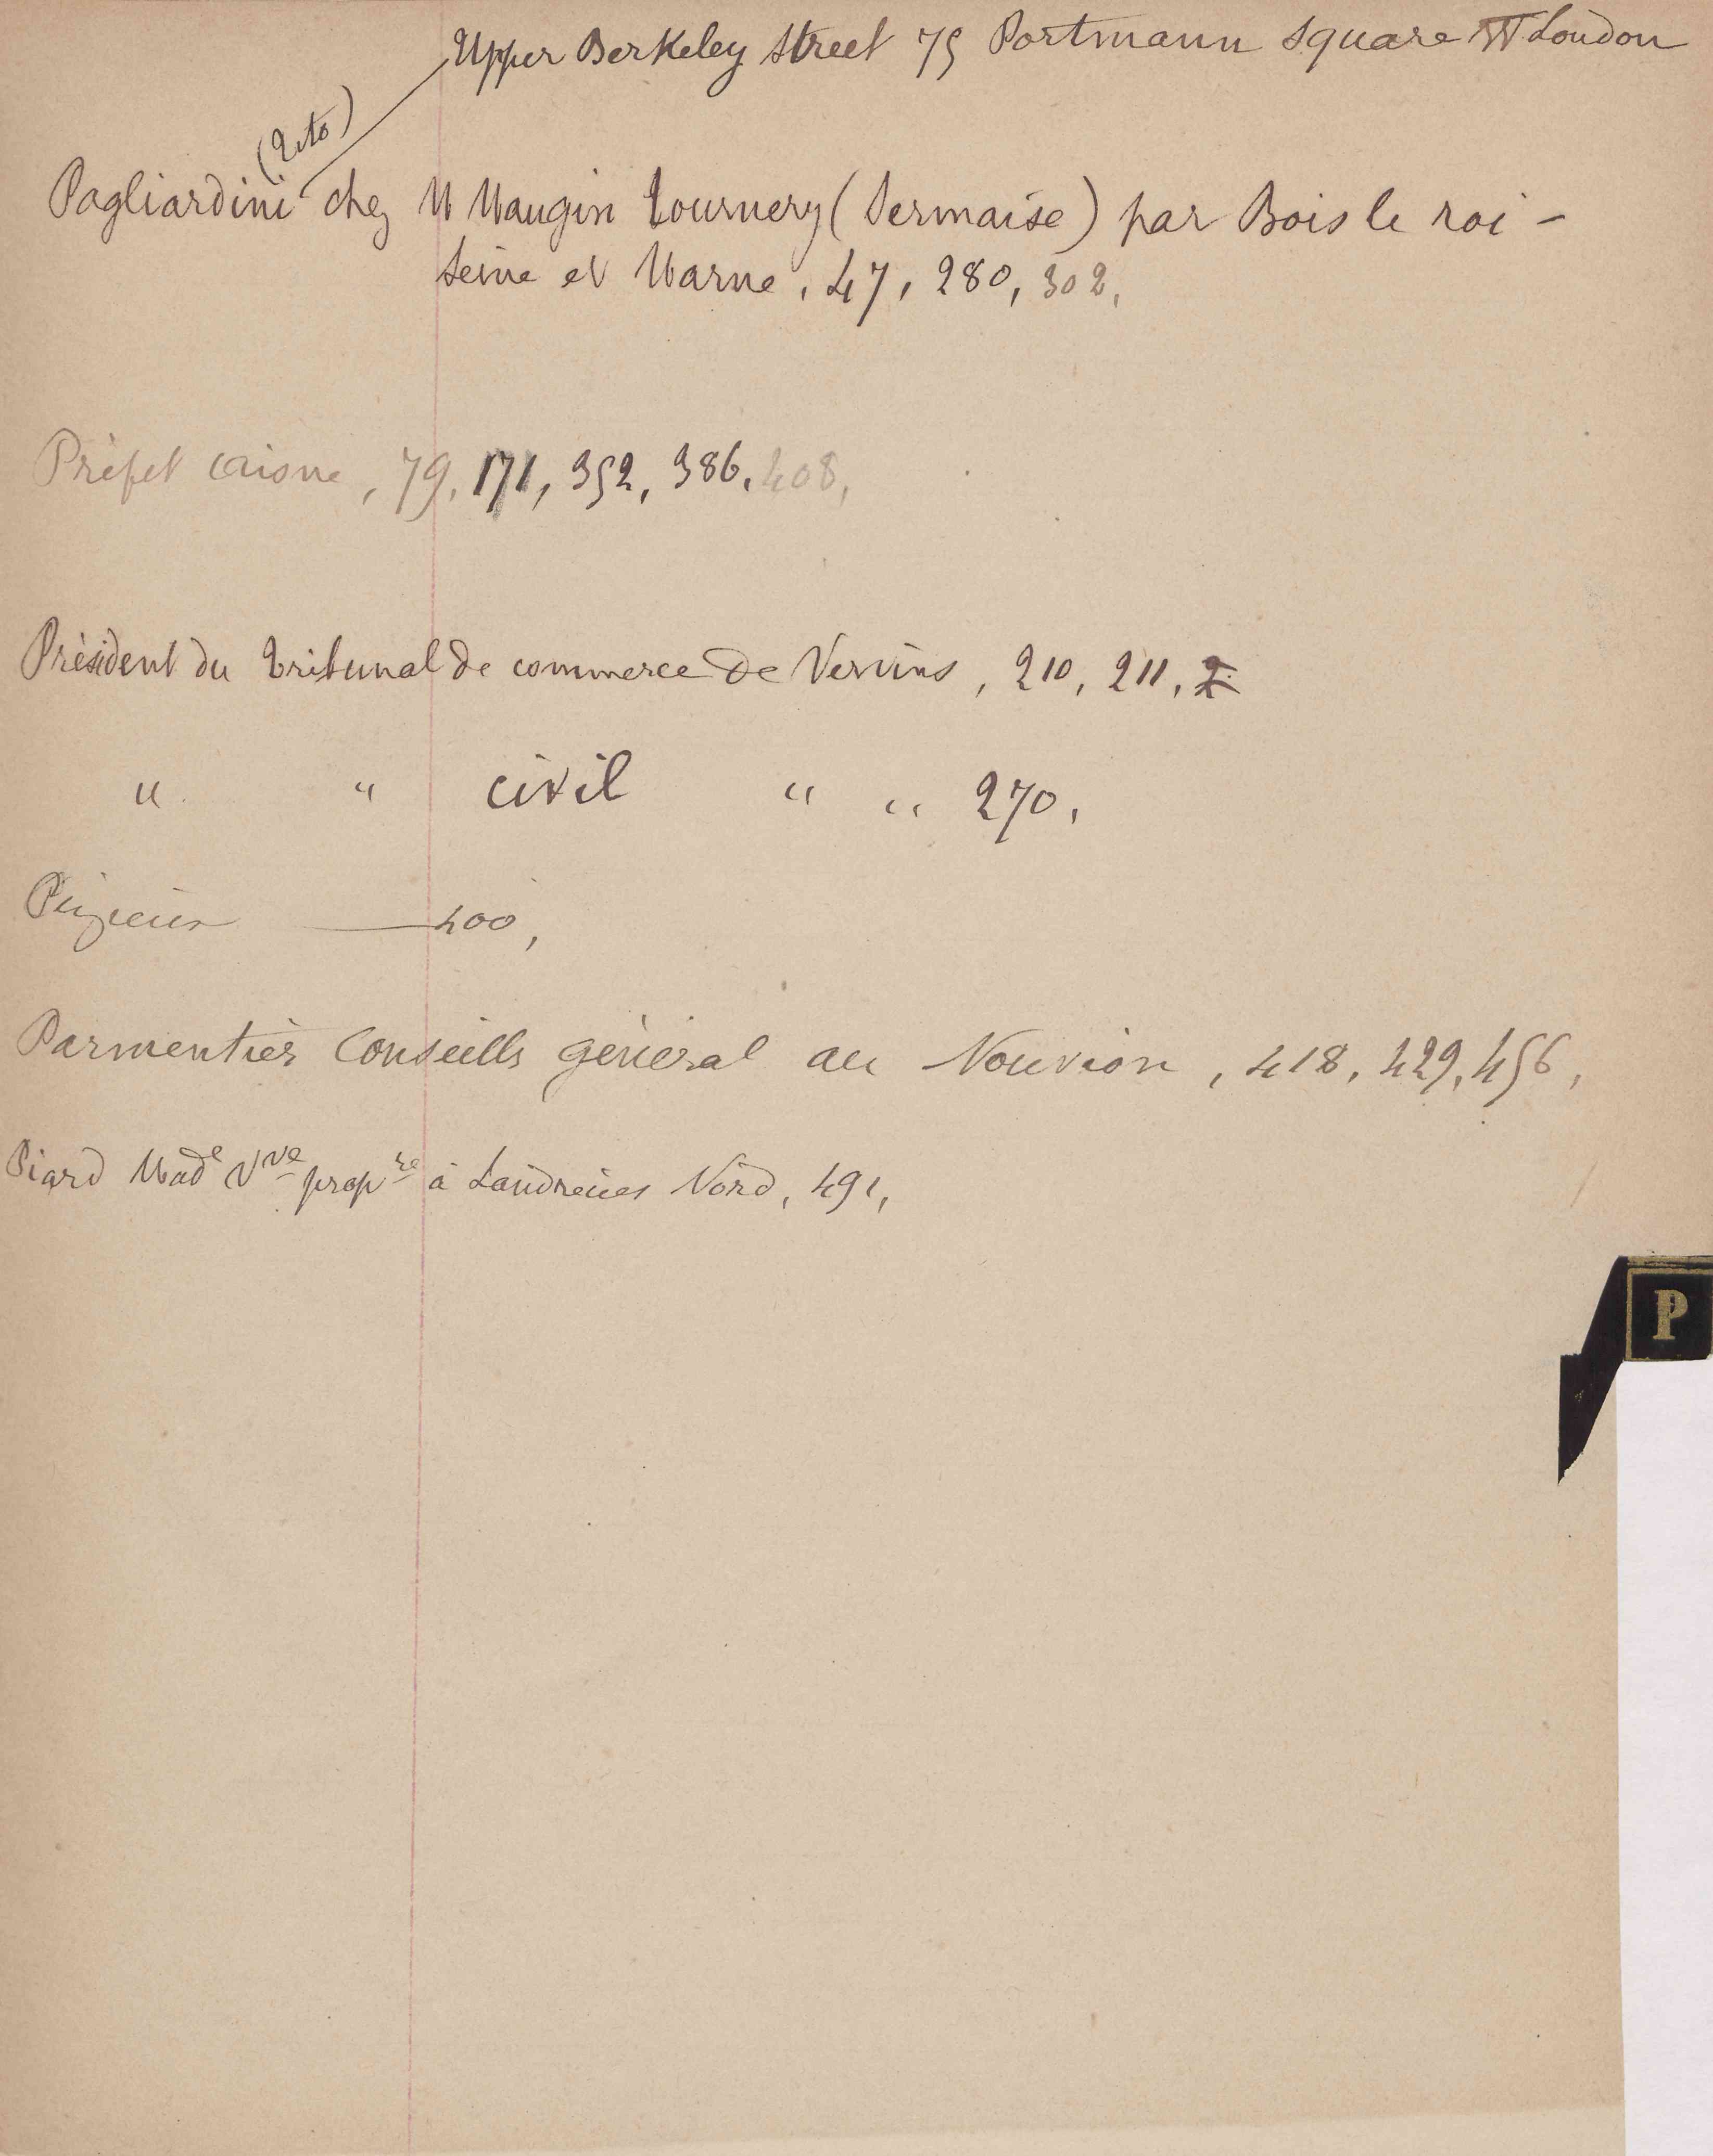 Upper Berkeley Street 75 Portmann Square W London
(Tito)
Pagliardini chez M Maugin Tournery (Sermaise) par Bois le roi -
Seine et Marne, 47, 280, 302,
Préfet Aisne, 79, 171, 352, 386, 408,
Président du Tribunal de commerce de Vervins, 210, 211, 2
" " civil " " 270,
400,
Parmentier Conseills général au Nouvion, 418, 429, 456,
Piard Made Vve propre à Landrecies Nord, 491,
P